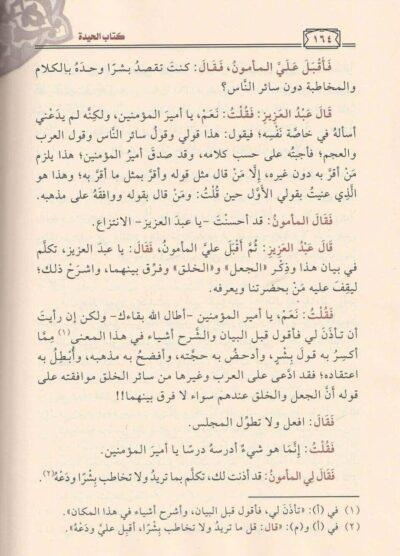 ١٦٤
كتاب الحيدة
فَأَقْبَلَ عَلَيَّ المـأمونُ، فَـقَالَ: كنـتَ تقصـدُ بشـرًا وحـدَهُ بالكلام
والمخاطبة دون سائر النَّاس؟
قَالَ عَبْدُ العَزِيزِ: فَقُلْتُ: نَعَمْ، يا أميرَ المؤمنين، ولكنَّه لم يدَعْني
أسألهُ في خاصَّة نَفْسِه؛ فيقول: هذا قولي وقولُ سائر النَّاس وقول العرب
والعجم؛ فأجبتُهُ على حسب كلامه، وقد صدقَ أميرُ المؤمنين؛ هذا يلزم
مَنْ أقرَّ به دون غيره، إلَّا مَنْ قال مثل قوله وأقرَّ بمثل ما أقرَّ به؛ وهذا هو
الَّذي عنيتُ بقولي الأوَّل حين قُلْتُ: ومَنْ قال بقوله ووافقَهُ على مذهبه.
فَقَالَ المأمونُ: قد أحسنْتَ -يا عبدَ العزيز- الانتزاعَ.
قَالَ عَبْدُ العَزِيزِ: ثُمَّ أَقْبَلَ عليَّ المأمونُ، فَقَالَ: يا عبدَ العزيز، تكلَّم
في بيان هذا وذِكْرِ «الجعل» و«الخلق» وفرِّق بينهما، واشرَحْ ذلك؛
ليقِفَ عليه مَنْ بحضرتنا ويعرفه.
فَقُلْتُ: نَعَمْ، يا أميرَ المؤمنين -أطال الله بقاءك- ولكن إن رأيتَ
أن تأذَنَ لي فأقول قبل البيان والشَّرح أشياء في هذا المعنى(١) مِمَّا
أكسِرُ به قولَ بِشْرٍ، وأدحضُ به حجَّته، وأفضحُ به مذهبه، وأُبْطِلُ به
اعتقاده؛ فقد ادَّعى على العرب وغيرها من سائر الخلق موافقته على
قوله أنَّ الجعل والخلق عندهم سواء لا فرق بينهما!!
فَقَالَ: افعل ولا تطوِّل المجلس.
فَقُلْتُ: إنَّما هو شيءٌ أدرسهُ درسًا يا أميرَ المؤمنين.
فَقَالَ لي المأمونُ: قد أذنت لك، تكلَّم بما تريدُ ولا تخاطب بِشْرًا ودَعْهُ(٢).
(١) في (أ): «تأذَنَ لي، فأقول قبل البيان، وأشرح أشياء في هذا المكان».
(٢) في (أ) و(م): «قال: قل ما تريدُ ولا تخاطب بِشْرًا، أقبل عليَّ ودَعْهُ».